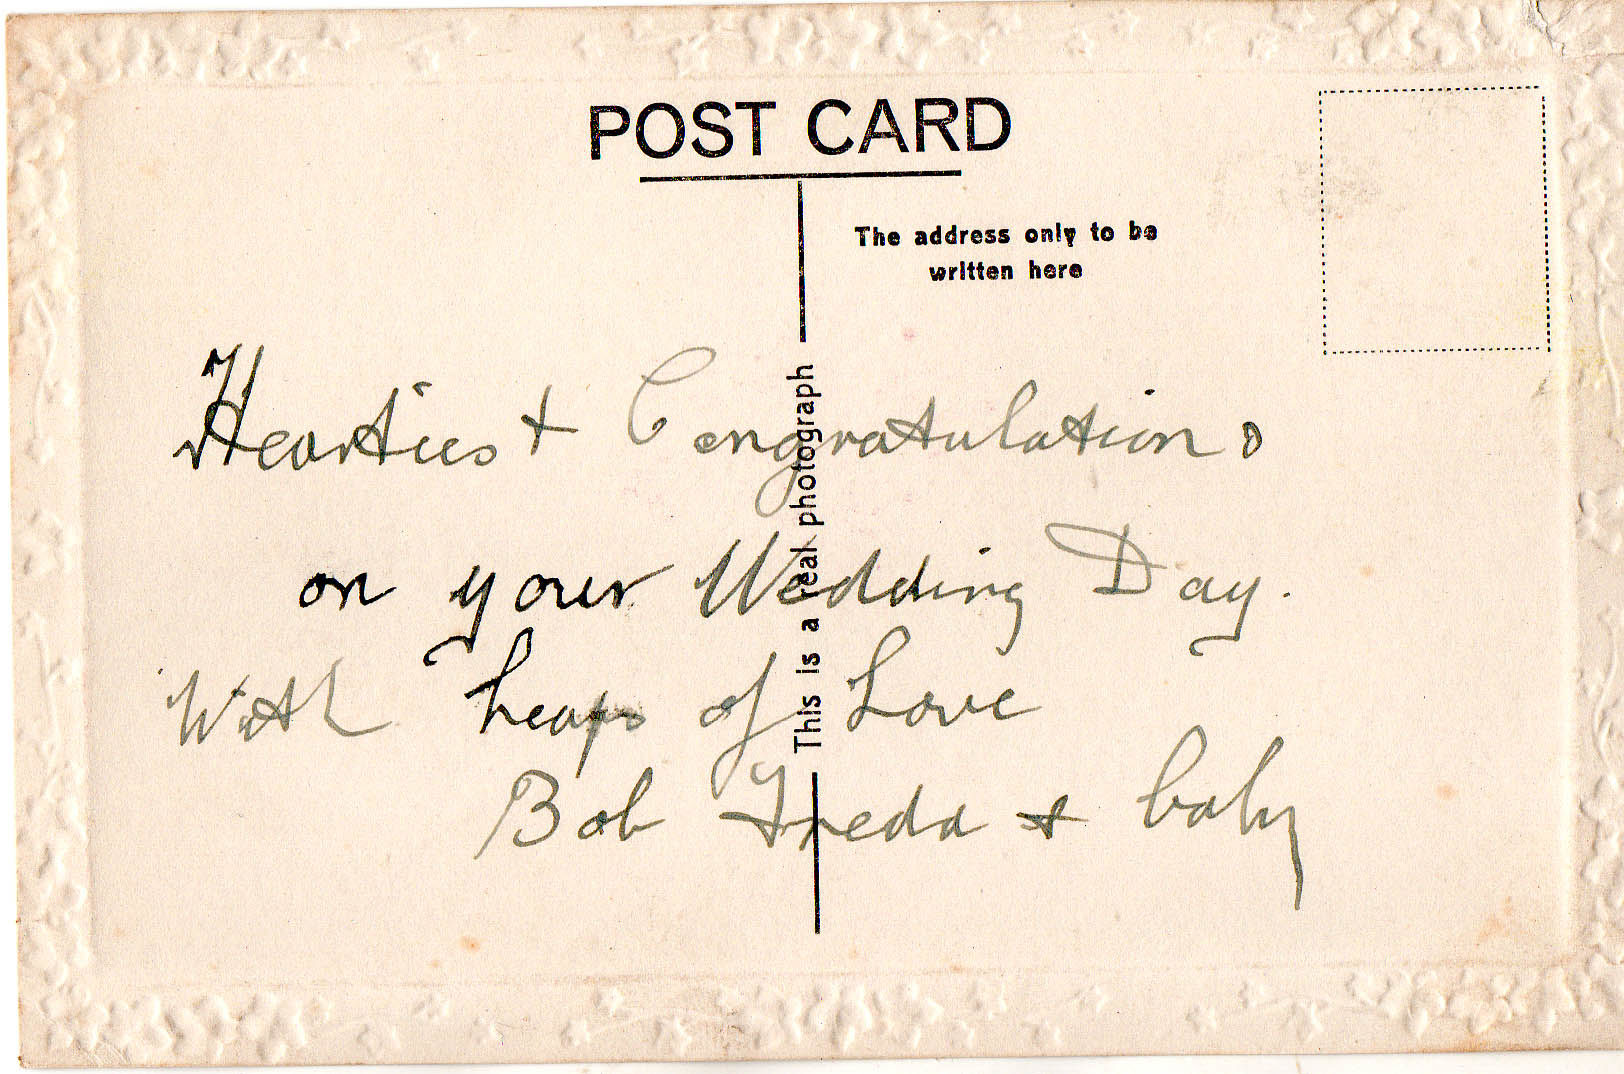 POST CARD
The address only to be
written here
This is a real photograph
Heartiest Congratulations
on your Wedding Day.
With heaps of Love
Bob Freda & baby